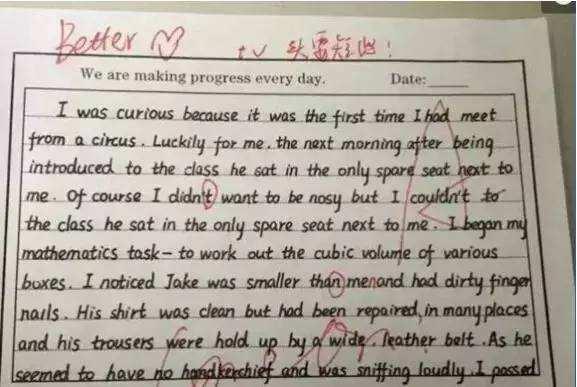 Better
We are making progress every day. Date:
I was curious because it was the first time I had meet
from a circus. Luckily for me, the next morning after being
introduced to the class he sat in the only spare seat next to
me. Of course I didn't want to be nosy but I couldn't to
the class he sat in the only spare seat next to me. I began my
mathematics task- to work out the cubic volume of various
boxes. I noticed Jake was smaller than menand had dirty finger
nails. His shirt was clean but had been repaired, in many places
and his trousers were hold up by a wide, leather belt. As he
seemed to have no handkerchief and was sniffing loudly. I passed